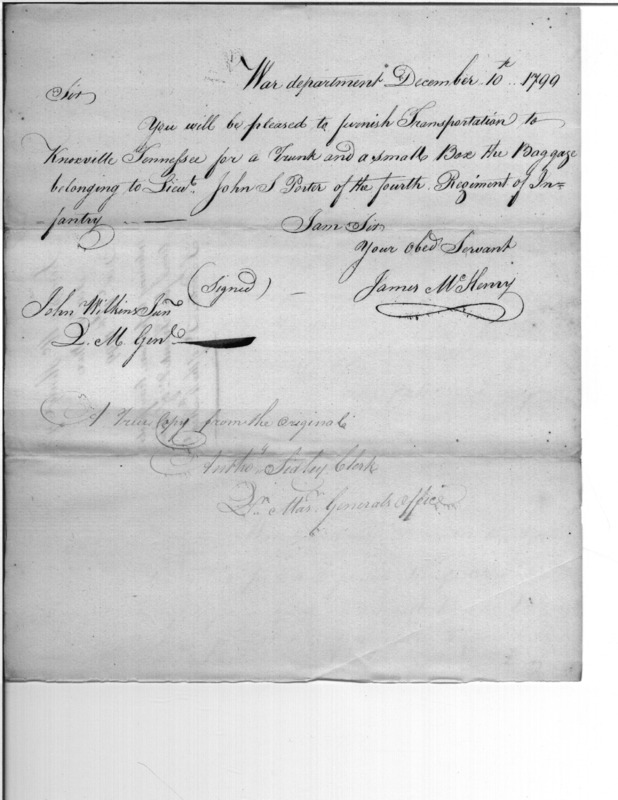 War department December 10th 1799
Sir
You will be pleased to furnish Transportation to
Knoxville Tennessee for a Trunk and a small Box the Baggage
belonging to Lieut. John S Porter of the fourth Regiment of In=
fantry
I am Sir
Your Obed Servant
(Signed) James McHenry
John Wilkins Junr
Q. M. Genl.
A True Copy from the original
Clerk
Qr. Mas. Generals Office